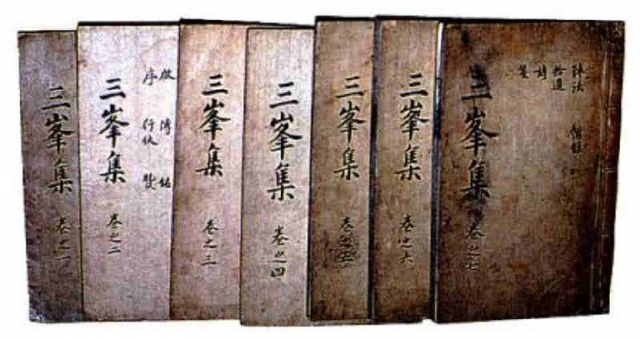 三峯集
卷之一
三峯集
卷之二
序 行狀
三峯集
卷之三
三峯集
卷之四
三峯集
卷之五
三峯集
卷之六
三峯集
卷之七
陣法
拾遺